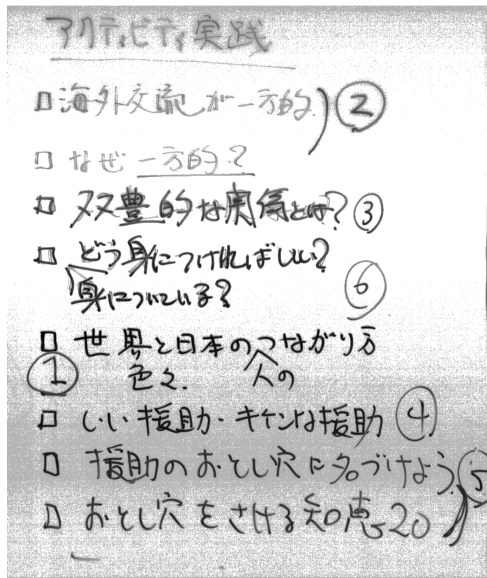 アクティビティ実践
□ 海外交流が一方的 ②
□ なぜ一方的?
□ 双豊的な関係とは? ③
□ どう身につければいい?
身についている? ⑥
□ 世界と日本のつながり方
① 色々. 人の
□ いい援助・キケンな援助 ④
□ 援助のおとし穴に名づけよう ⑤
□ おとし穴をさける知恵20